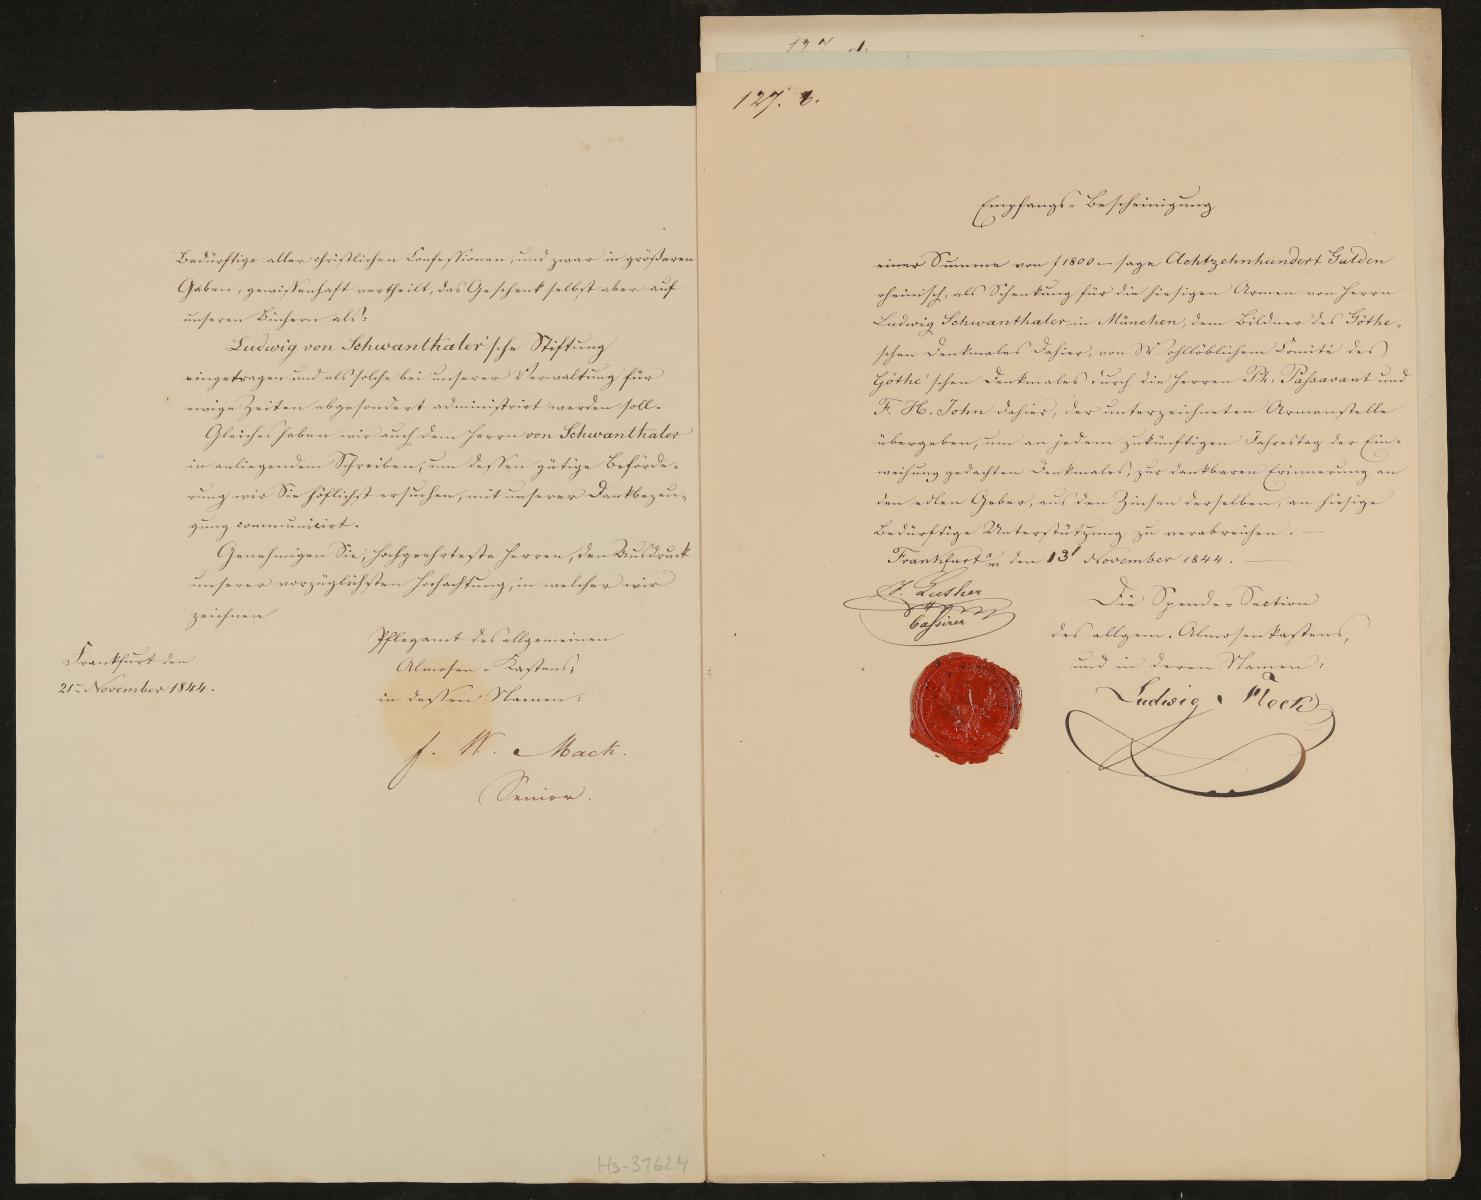 Bedürftige aller christlichen Confessionen, und zwar in größeren
Gaben, gewissenhaft vertheilt, das Geschenk selbst aber auf
unseren Büchern als:
Ludwig von Schwanthaler'sche Stiftung
eingetragen und als solche bei unserer Verwaltung für
ewige Zeiten abgesondert administrirt werden soll.
Gleiches haben wir auch dem Herrn von Schwanthaler
in anliegendem Schreiben, um dessen gütige Beförde-
rung wir Sie höflichst ersuchen, mit unserer Dankbezeu-
gung communicirt.
Genehmigen Sie, hochgeehrteste Herren, den Ausdruck
unserer vorzüglichsten Hochachtung, in welcher wir
zeichnen
Pflegamt des allgemeinen
Almosen-Kastens;
in dessen Namen:
Frankfurt den
21n November 1844.
f. W. Mack.
Senior.
Hs-37624
127. d.
127. c.
Empfangs-Bescheinigung
einer Summe von f 1800 – sage Achtzehnhundert Gulden
rheinisch, als Schenkung für die hiesigen Armen von Herrn
Ludwig Schwanthaler in München, dem Bildner des Göthe-
schen Denkmales dahier, von Wohllöblichem Comité des
Göthe'schen Denkmales durch die Herren Ph: Passavant und
F. H. John dahier, der unterzeichneten Armenstelle
übergeben, um an jedem zukünftigen Jahrestag der Ein-
weihung gedachten Denkmales, zur dankbaren Erinnerung an
den edlen Geber, aus den Zinsen derselben, an hiesige
Bedürftige Unterstützung zu verabreichen. —
Frankfurt a/m den 13t November 1844. —
J. Luther
Cassirer
Die Spende-Section
des allgem. Almosenkastens,
und in deren Namen:
Ludwig Fleck